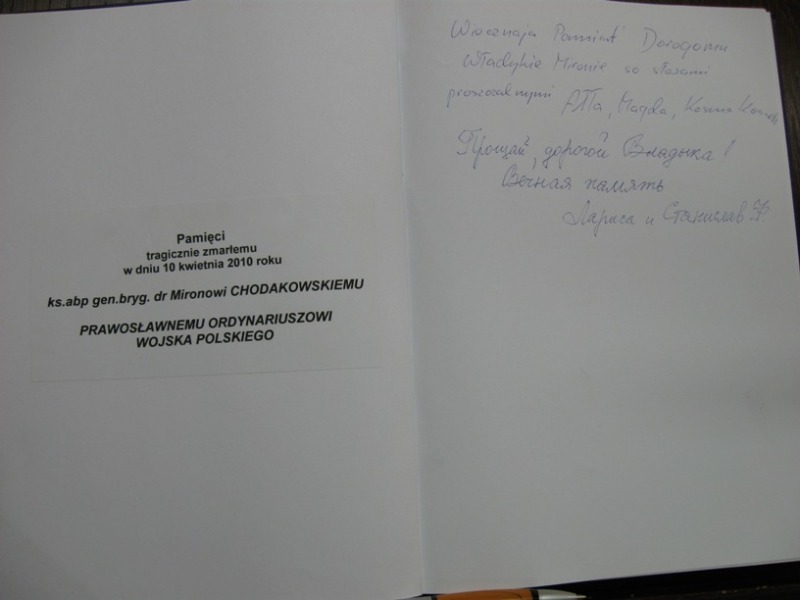 Pamięci
tragicznie zmarłemu
w dniu 10 kwietnia 2010 roku
ks.abp gen.bryg. dr Mironowi CHODAKOWSKIEMU
PRAWOSŁAWNEMU ORDYNARIUSZOWI
WOJSKA POLSKIEGO
Wiecznaja Pamiat' Dorogomu
Władykie Mironie so słozami
Ałła, Magda,
Прощай, дорогой Владыка!
Вечная память
Лариса и Станислав Ф.